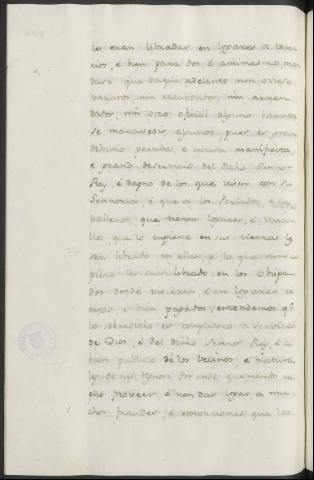 les eran libradas en logares a terce
cios, é bien para dos, é ansimesmo man
dará que daqui adelante non
nin recabdador, nin arren
dador, nin otro oficial alguno barate
se maravedis algunos, pues es gran
dísimo pecado, é usura manifiesta,
é grand deservicio del dicho Sennor
Rey, é dapno de los que viven con su
Sennoria, é que a los Perlados, é Ca
valleros que tienen logares, é vasa
llos, que lo cupiere en sus tierras les
sea librado en ellas, é lo que non cu
piere les sea librado en los Obispa
dos donde vivieren, é en logares
é bien pagados, entendemos q.e
lo sobredicho es complidero a servicio
de Dios, é del dicho Sennor Rey, é a
bien publico de los vecinos, é natura
les de sus Por ende queriendo en
ello proveer, é non dar logar a mu
chos fraudes, é extorciones que los